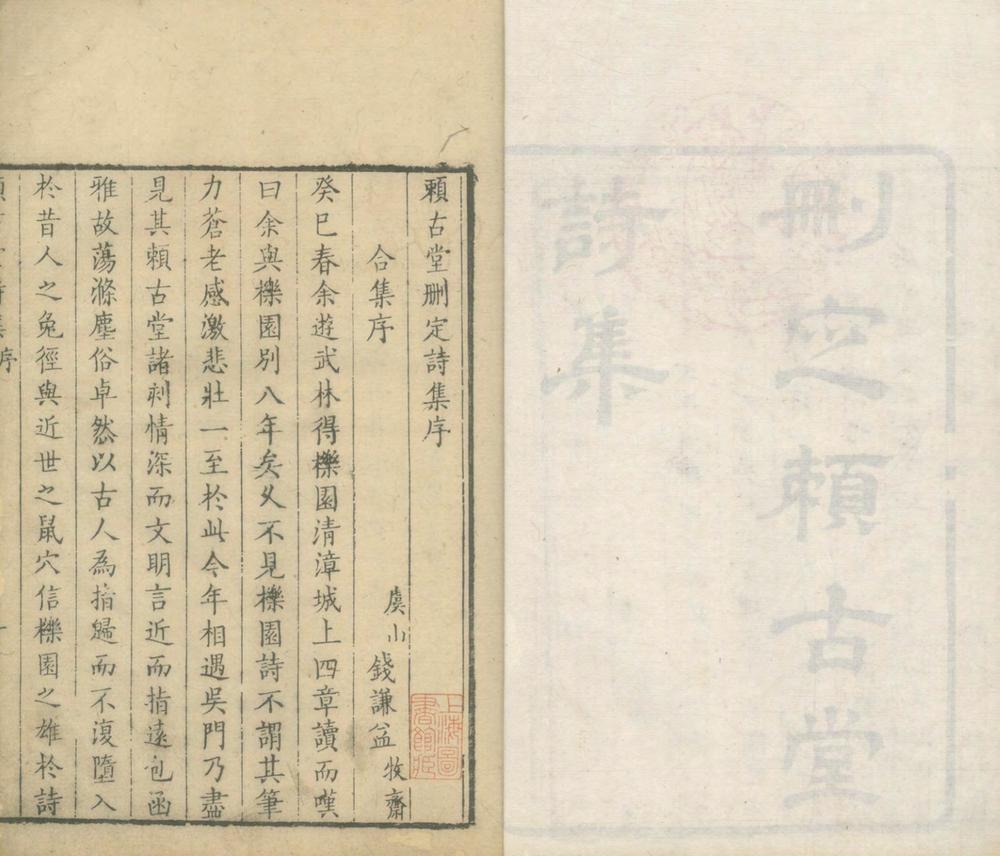 刪定賴古堂
詩集
賴古堂刪定詩集序
合集序
虞山錢謙益牧齋
癸巳春余遊武林得櫟園清漳城上四章讀而嘆
曰余與櫟園別八年矣久不見櫟園詩不謂其筆
力蒼老感激悲壯一至於此今年相遇吳門乃盡
見其賴古堂諸刻情深而文明言近而指遠包函
雅故蕩滌塵俗卓然以古人為指歸而不復墮入
於昔人之兔徑與近世之鼠穴信櫟園之雄於詩
上海圖
書館藏